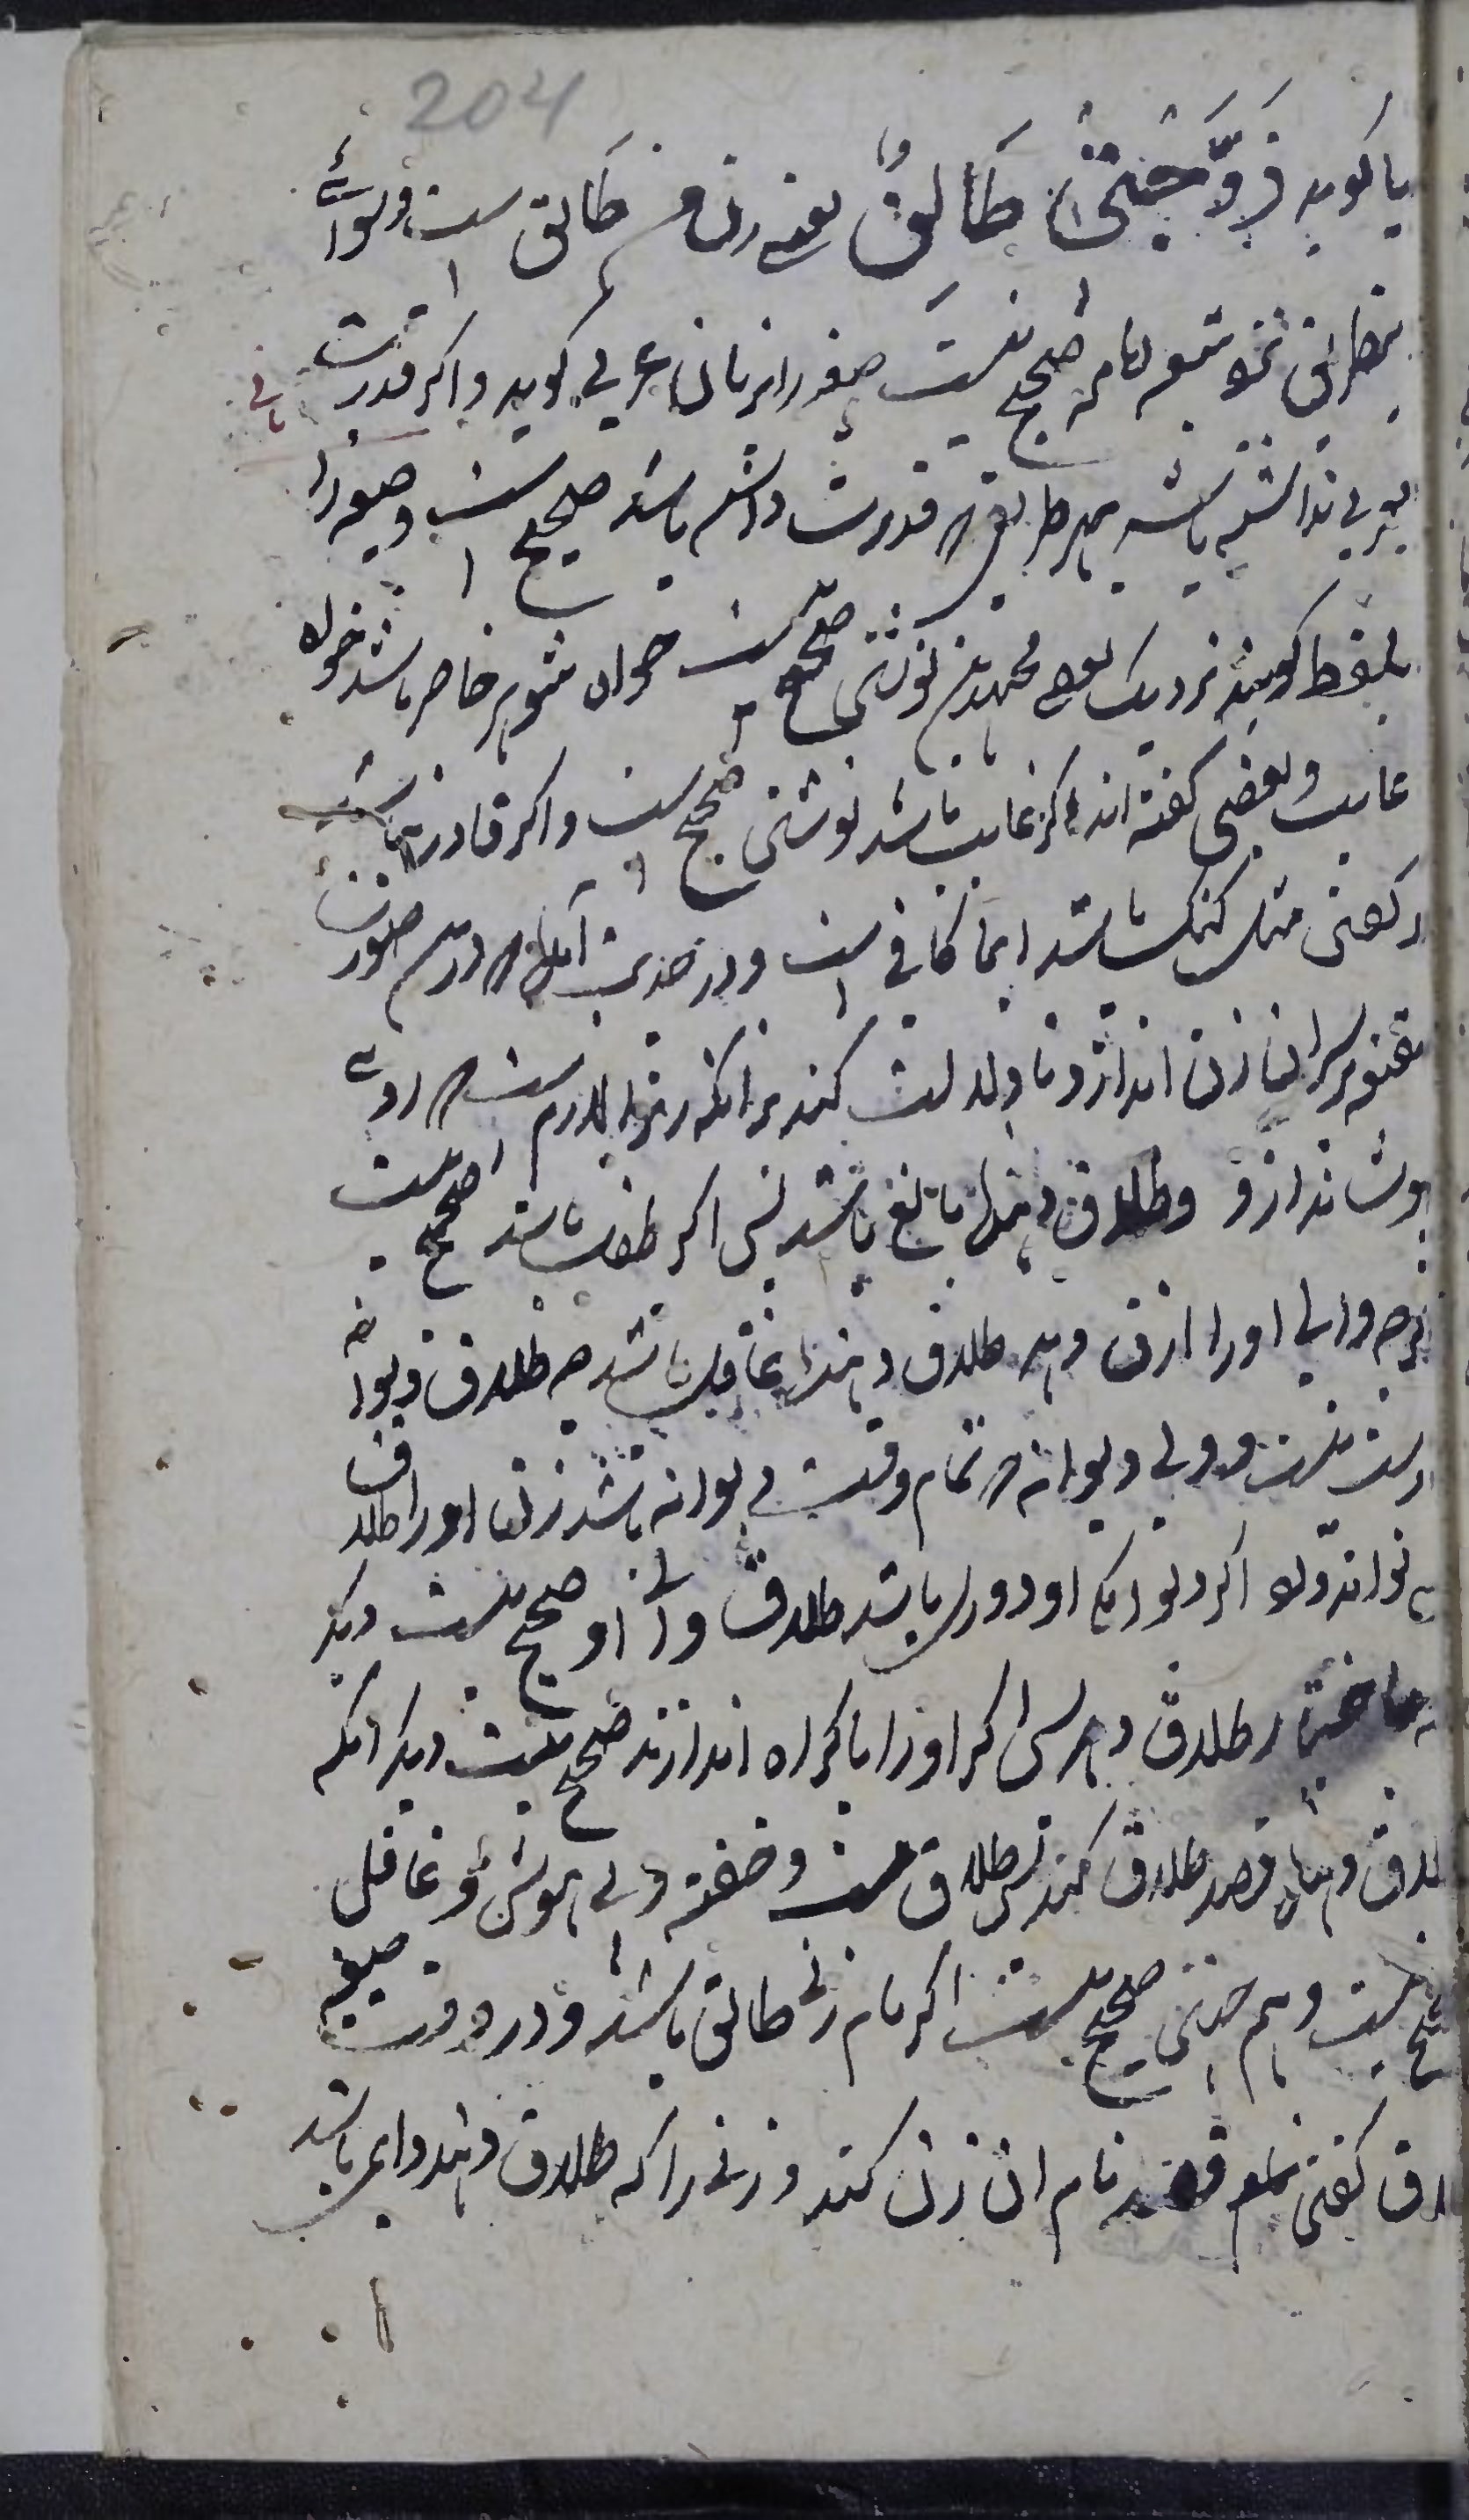 204
یا کوید زَوَّجَتی طَالِقٌ یعنے زن من طالق است و سوائے
صحیح نیست صغه را بزبان عربی کوید و اکر قدرت
بعربی نداشته باشد بهر طریق که قدرت داشته باشد صحیح است و صیغه را
بلفظ کویند نزدیک بعضے مجتهدین نوشتن صحیح است خواه شوهر حاضر باشد خواه
غایب و بعضی کفته اند اکر غایب باشد نوشتن صحیح است و اکر قادر نباشد
بر کفتن مثل کنک باشد ایما کافی است و در حدیث آمده که درین صورت
مقنعه بر سر ان زن اندازد تا دلالت کند بر انکه زن حرام است که روے
پوشاند ازو و طلاق دهنده بالغ باشد پس اکر طفل باشد صحیح نیست
اکرچه ولی او را اذن دهد طلاق دهنده عاقل باشد چه طلاق دیوانه
درست نیست و ولی دیوانه که تمام وقت دیوانه باشد زن او را طلاق
می تواند داد اکر دیوانکی او دوری باشد طلاق ولی او صحیح نیست دیکر
باختیار طلاق دهد پس اکر او را باکراه اندازند صحیح نیست دیکر انکه
طلاق دهنده قصد طلاق کند پس طلاق مست و خفته و بی هوش و غافل
صحیح نیست و هم چنین صحیح نیست اکر نام زنے طالق باشد و در وقت صیغه
طلاق کفتن قصد نام ان زن کند و زنے را که طلاق دهد دایمی باشد